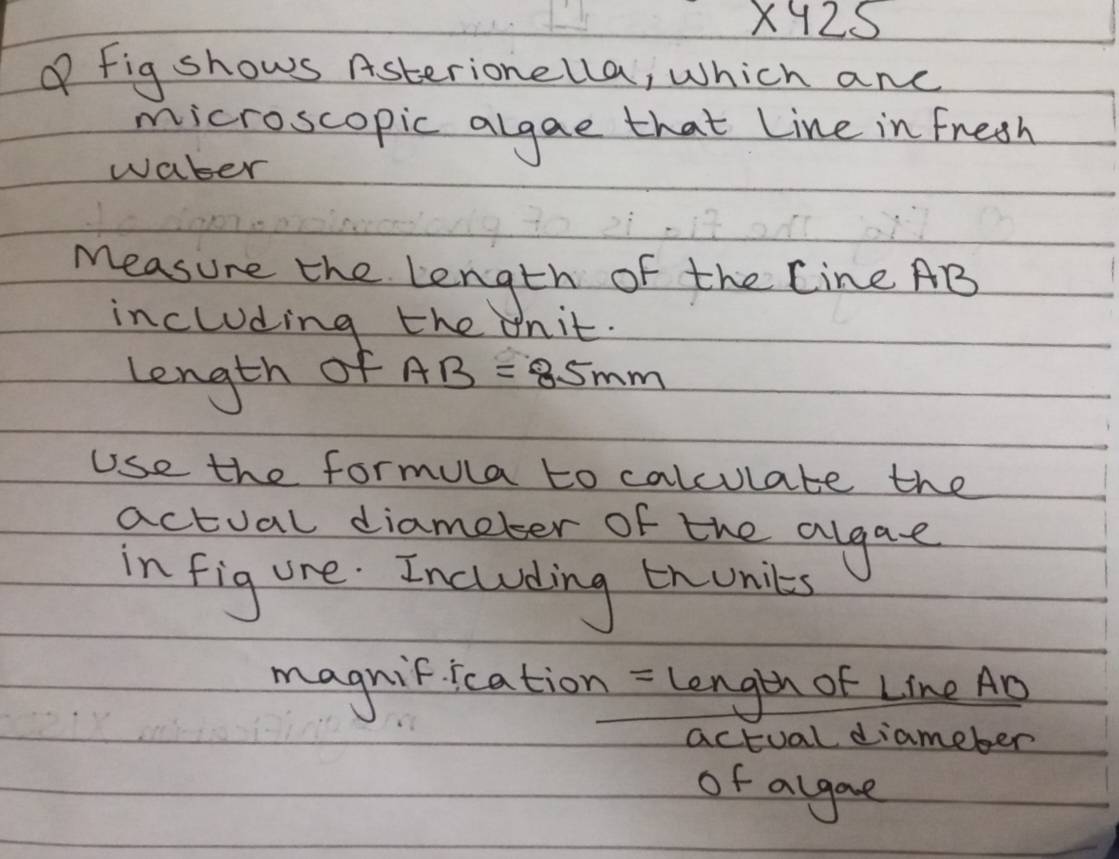 X425
Q Fig shows Asterionella, which are
microscopic algae that Live in fresh
water
Measure the length of the Line AB
including the unit.
Length of AB = 85mm
Use the formula to calculate the
actual diameter of the algae
in figure. Including th units
magnification = Length of Line AB
actual diameter
of algae